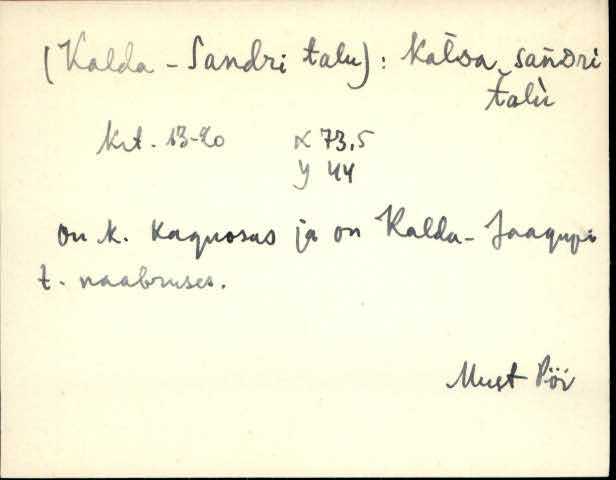 (Kalda - Sandri talu): kal̄ᴅa sanᴅri
talù
krt. 13-20 x 73,5
y 44
on k. kaguosas ja on Kalda-Jaagupi
t. naabruses.
Must Pöi